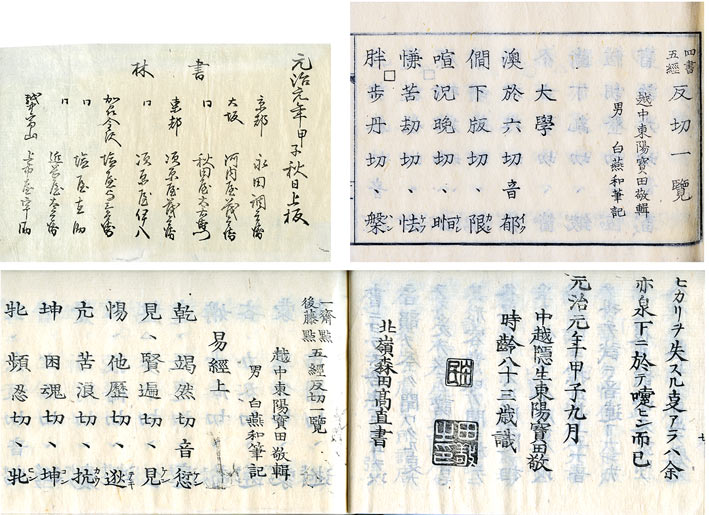 書林
元治元年甲子秋日上板
京都 永田調兵衛
大坂 河内屋茂兵衛
口 秋田屋太右衛門
東都 須原屋茂兵衛
口 須原屋伊八
加州金沢
口
口 近岡屋太兵衛
越中富山 上市屋宇助
四書
五經
反切一覽
越中東陽寶田敬輯
男 白燕和筆記
大學
澳於六切音郁
僩下版切、限
喧況晩切、暅
慊苦劫切、怯
胖步丹切、槃
ヒカリヲ失スル叓アラハ余
亦泉下ニ於テ嚏セン而已
元治元年甲子九月
中越隱生東陽寶田敬
時齡八十三歲識
北嶺森田高直書
一齋點
後藤點
五經反切一覽
越中東陽寶田敬輯
男 白燕和筆記
易經上
乾、竭然切音愆
見、賢遍切、見
惕、他歷切、逖
亢、苦浪切、抗
坤、困魂切、坤
牝、頻忍切、牝